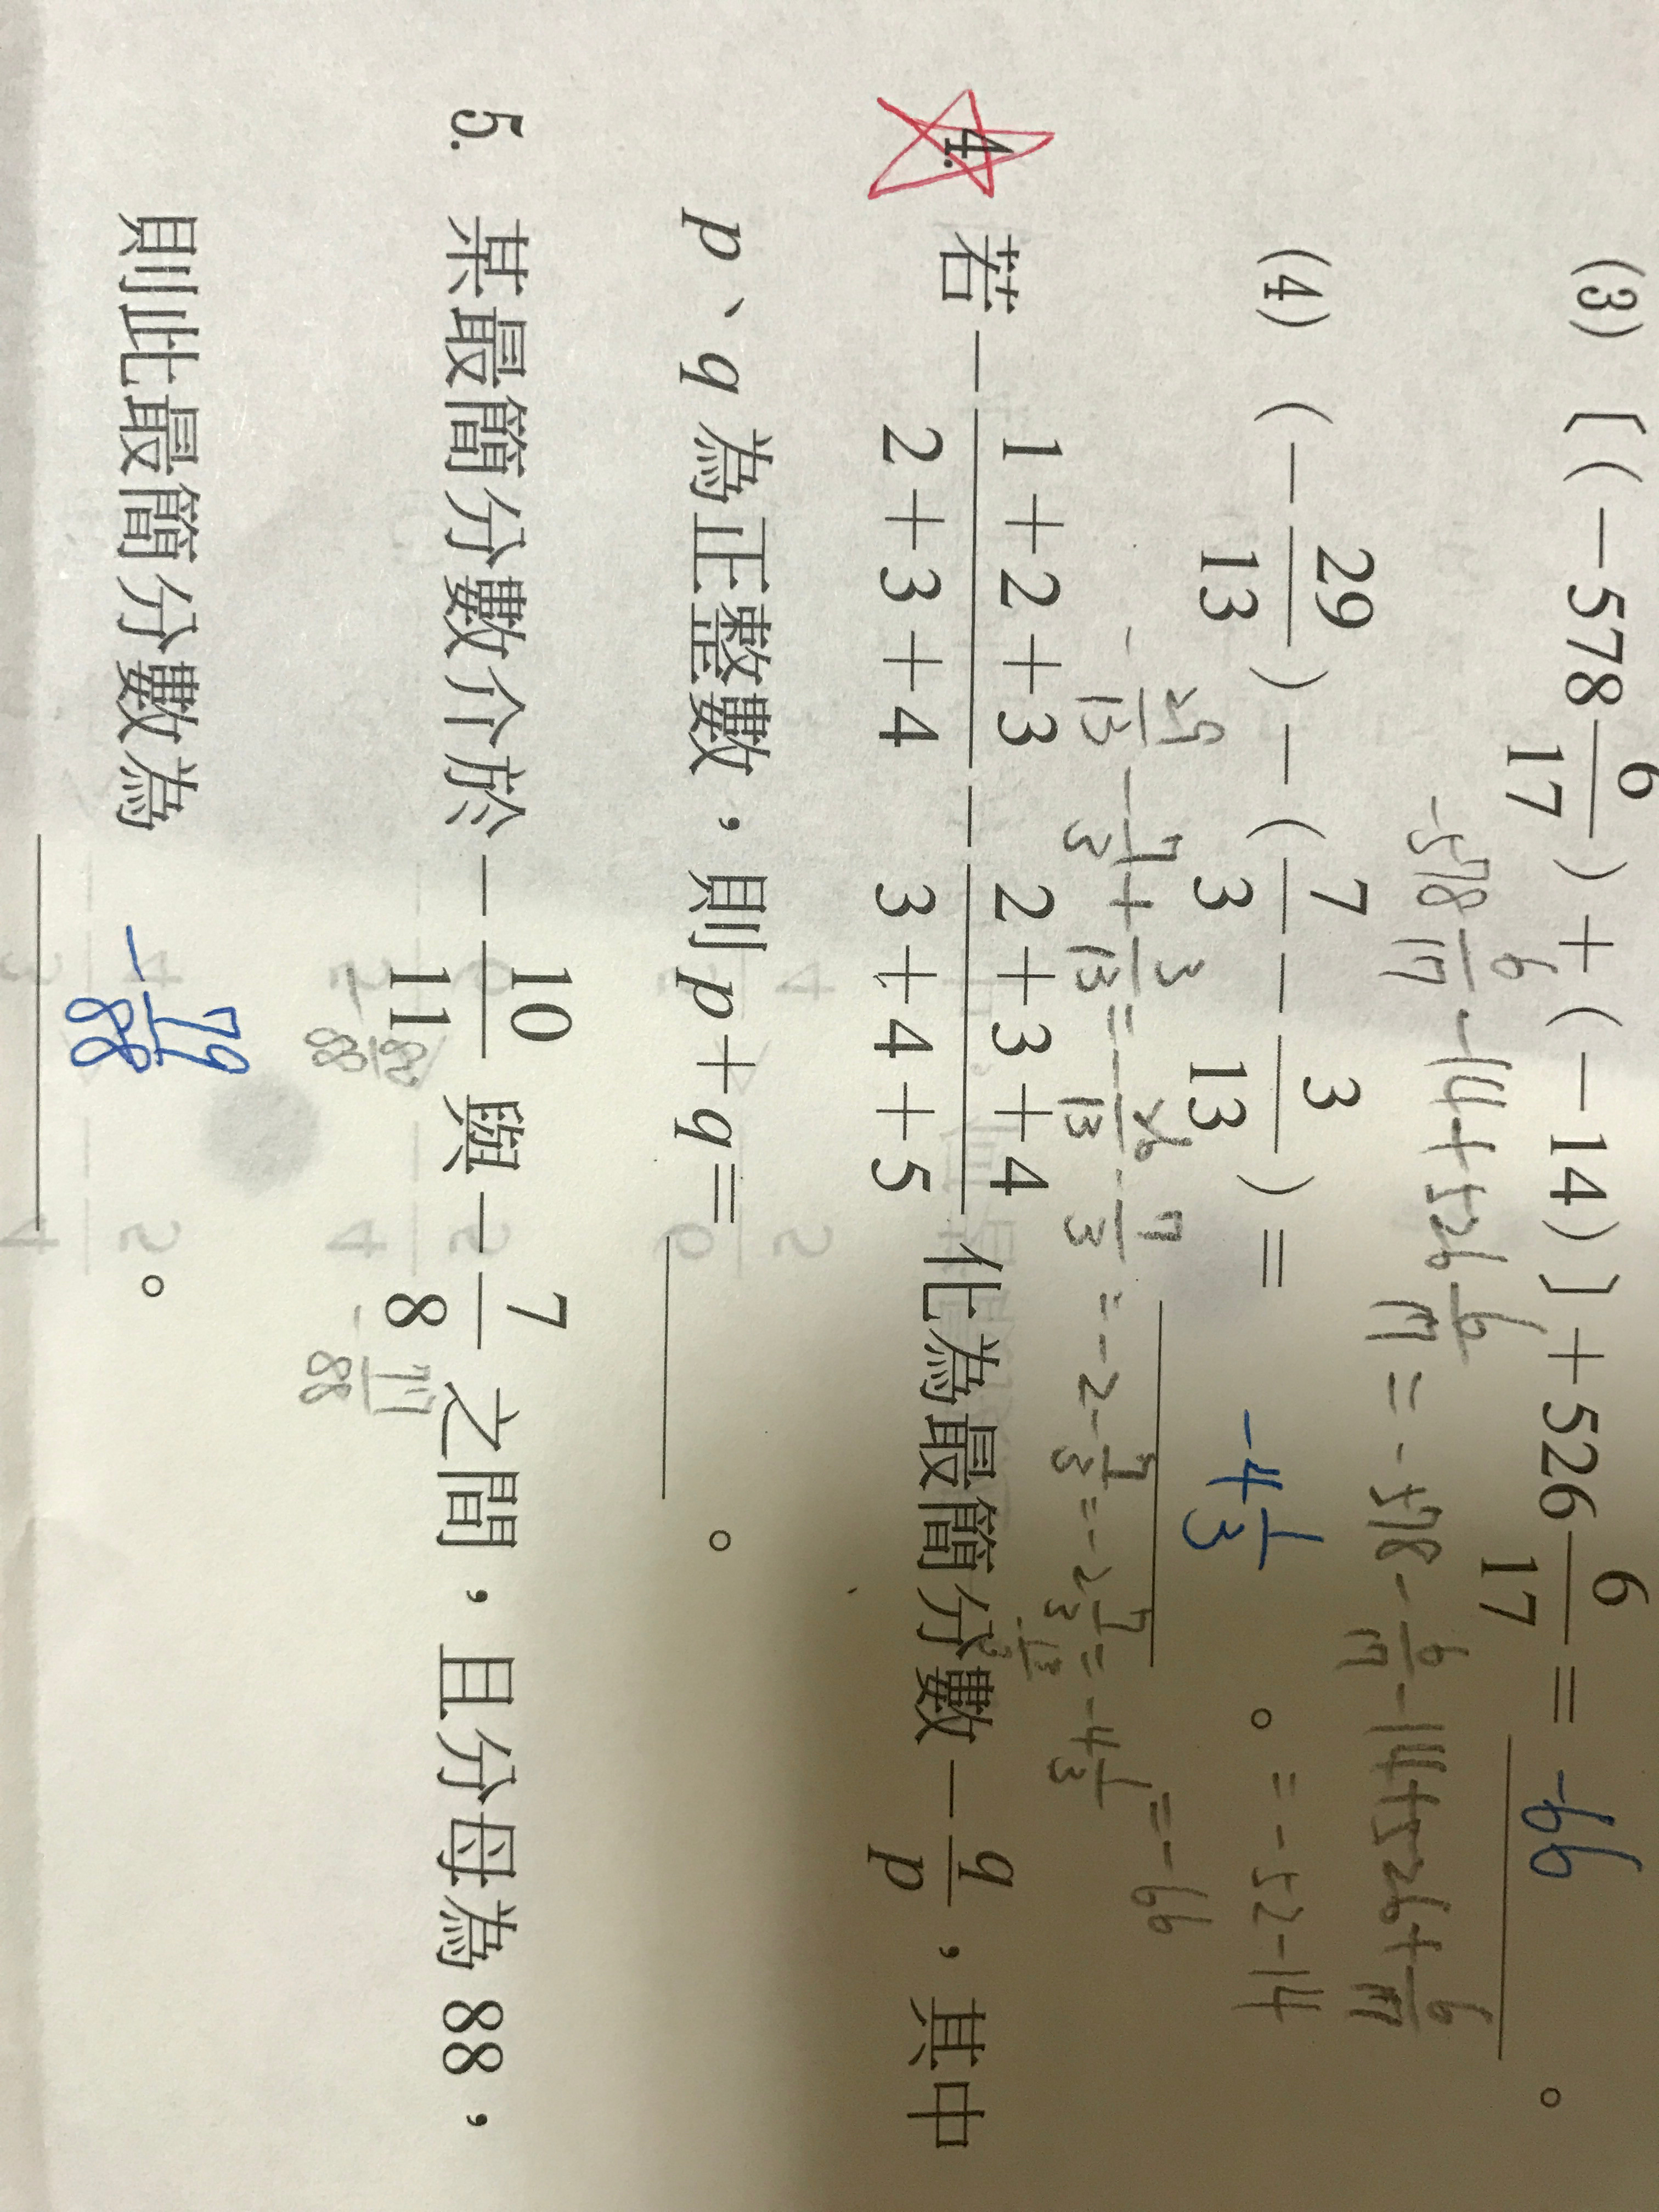 (3) 〔(-578 6/17)+(-14)〕+526 6/17= -66 。
-578 6/17 -14+526 6/17 = -578 - 6/17 -14+526+ 6/17
= -52-14
= -66
(4) (- 29/13)-(7/3 - 3/13)= -4 1/3 。
- 29/13 - 7/3 + 3/13 = - 26/13 - 7/3 = -2- 7/3 = -2 7/3 = -4 1/3
4. 若- (1+2+3)/(2+3+4) - (2+3+4)/(3+4+5) 化為最簡分數- q/p,其中
p、q為正整數,則p+q= 。
5. 某最簡分數介於- 10/11 與- 7/8 之間,且分母為 88,
- 80/88 - 77/88
則此最簡分數為 - 79/88 。